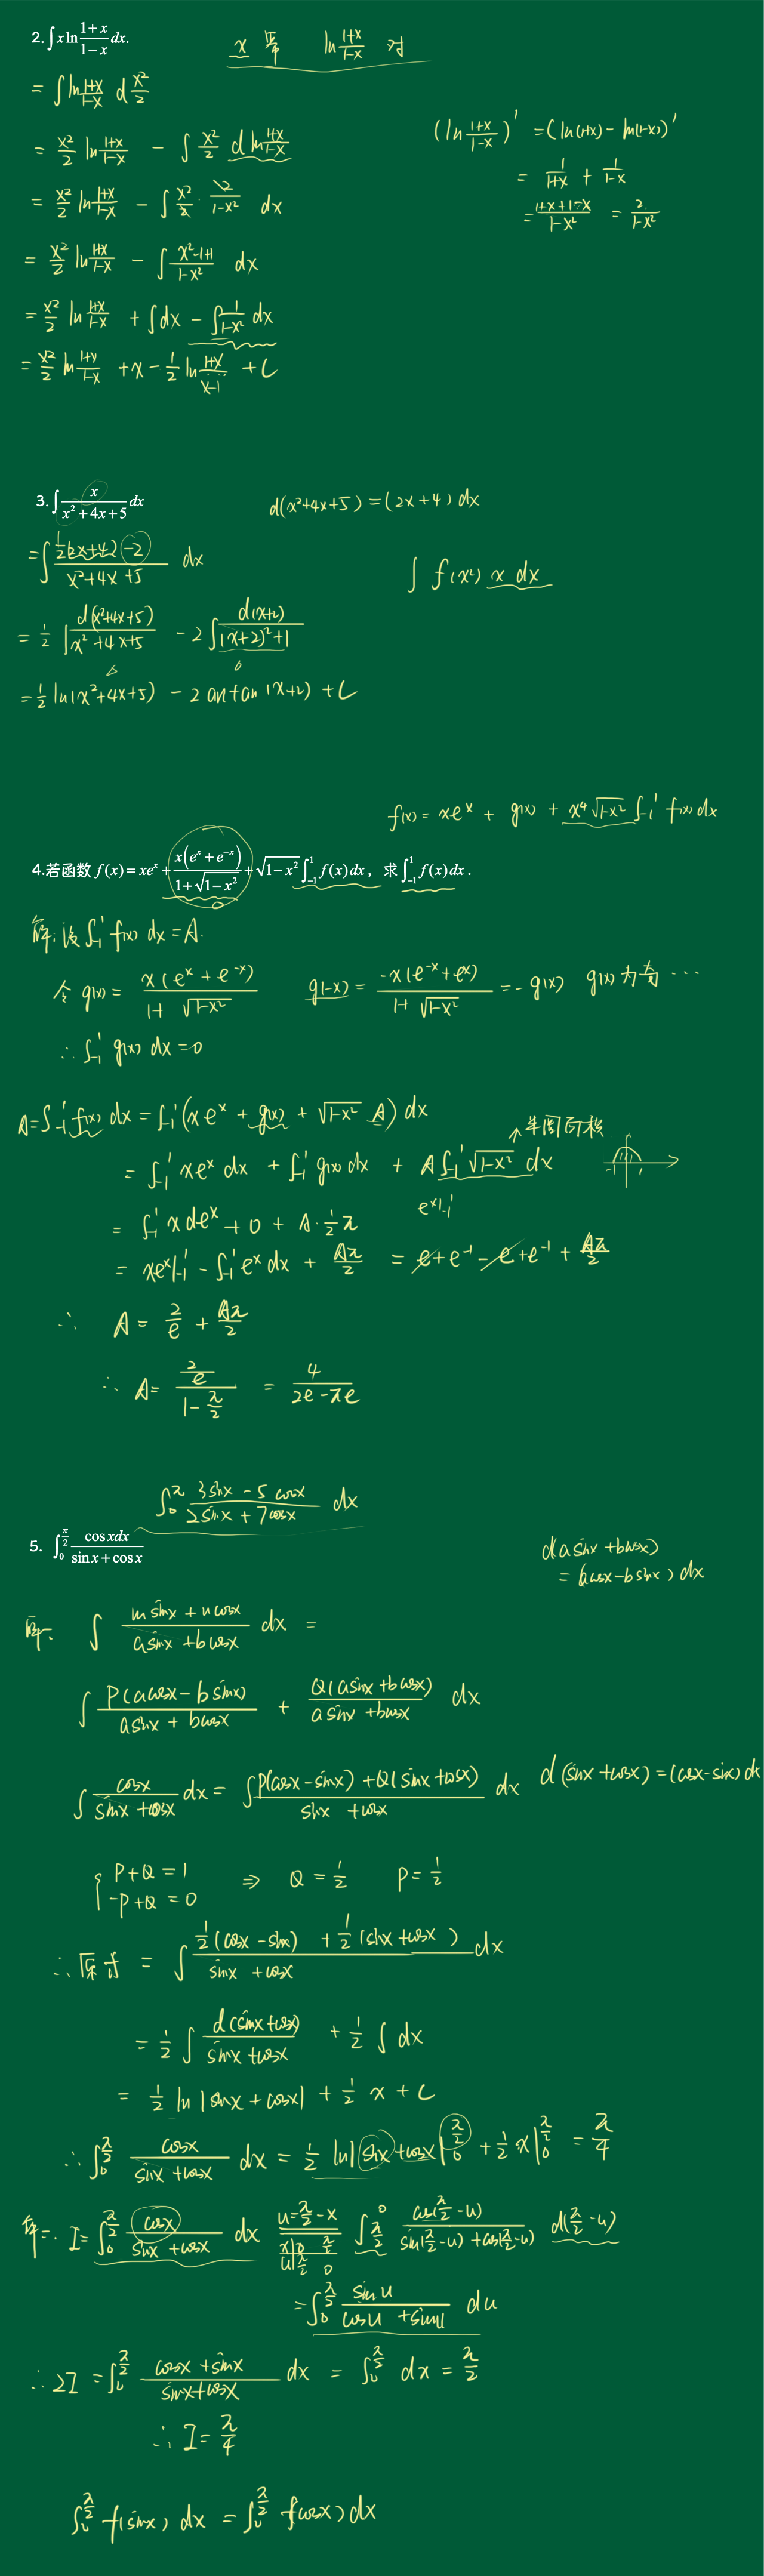 2. ∫ x ln (1+x)/(1-x) dx.
x 幂 ln (1+x)/(1-x) 对
= ∫ ln (1+x)/(1-x) d x²/2
= x²/2 ln (1+x)/(1-x) - ∫ x²/2 d ln (1+x)/(1-x)
(ln (1+x)/(1-x))' = (ln(1+x) - ln(1-x))'
= 1/(1+x) + 1/(1-x)
= (1+x+1-x)/(1-x²) = 2/(1-x²)
= x²/2 ln (1+x)/(1-x) - ∫ x²/2 · 2/(1-x²) dx
= x²/2 ln (1+x)/(1-x) - ∫ (x²-1+1)/(1-x²) dx
= x²/2 ln (1+x)/(1-x) + ∫ dx - ∫ 1/(1-x²) dx
= x²/2 ln (1+x)/(1-x) + x - 1/2 ln (1+x)/(x-1) + C
3. ∫ x/(x²+4x+5) dx
d(x²+4x+5) = (2x+4) dx
= ∫ (1/2(2x+4) - 2)/(x²+4x+5) dx
∫ f(x²) x dx
= 1/2 ∫ d(x²+4x+5)/(x²+4x+5) - 2 ∫ d(x+2)/((x+2)²+1)
= 1/2 ln(x²+4x+5) - 2 arctan(x+2) + C
f(x) = xeˣ + g(x) + x⁴ √(1-x²) ∫₋₁¹ f(x) dx
4.若函数 f(x) = xeˣ + x(eˣ+e⁻ˣ)/(1+√(1-x²)) + √(1-x²) ∫₋₁¹ f(x)dx，求 ∫₋₁¹ f(x)dx .
解: 设 ∫₋₁¹ f(x) dx = A.
令 g(x) = x(eˣ+e⁻ˣ)/(1+√(1-x²)) g(-x) = -x(e⁻ˣ+eˣ)/(1+√(1-x²)) = -g(x) g(x) 为奇 ...
∴ ∫₋₁¹ g(x) dx = 0
A = ∫₋₁¹ f(x) dx = ∫₋₁¹ (xeˣ + g(x) + √(1-x²) A) dx
↑ 半圆面积
= ∫₋₁¹ xeˣ dx + ∫₋₁¹ g(x) dx + A ∫₋₁¹ √(1-x²) dx
-1 1
= ∫₋₁¹ x deˣ + 0 + A · 1/2 π
eˣ|₋₁¹
= xeˣ|₋₁¹ - ∫₋₁¹ eˣ dx + Aπ/2 = e + e⁻¹ - e + e⁻¹ + Aπ/2
∴ A = 2/e + Aπ/2
∴ A = (2/e)/(1 - π/2) = 4/(2e - πe)
∫₀^π (3sinx - 5cosx)/(2sinx + 7cosx) dx
5. ∫₀^(π/2) cos xdx/(sin x + cos x)
d(a sinx + b cosx)
= (a cosx - b sinx) dx
解. ∫ (m sinx + n cosx)/(a sinx + b cosx) dx =
∫ P(a cosx - b sinx)/(a sinx + b cosx) + Q(a sinx + b cosx)/(a sinx + b cosx) dx
∫ cosx/(sinx + cosx) dx = ∫ (P(cosx - sinx) + Q(sinx + cosx))/(sinx + cosx) dx d(sinx + cosx) = (cosx - sinx) dx
{ P + Q = 1
-P + Q = 0 ⇒ Q = 1/2 P = 1/2
∴ 原式 = ∫ (1/2(cosx - sinx) + 1/2(sinx + cosx))/(sinx + cosx) dx
= 1/2 ∫ d(sinx + cosx)/(sinx + cosx) + 1/2 ∫ dx
= 1/2 ln|sinx + cosx| + 1/2 x + C
∴ ∫₀^(π/2) cosx/(sinx + cosx) dx = 1/2 ln|sinx + cosx| |₀^(π/2) + 1/2 x|₀^(π/2) = π/4
解二. I = ∫₀^(π/2) cosx/(sinx + cosx) dx
u = π/2 - x
x | 0 π/2
u | π/2 0
∫_(π/2)^0 cos(π/2 - u)/(sin(π/2 - u) + cos(π/2 - u)) d(π/2 - u)
= ∫₀^(π/2) sin u/(cos u + sin u) du
∴ 2I = ∫₀^(π/2) (cosx + sinx)/(sinx + cosx) dx = ∫₀^(π/2) dx = π/2
∴ I = π/4
∫₀^(π/2) f(sinx) dx = ∫₀^(π/2) f(cosx) dx